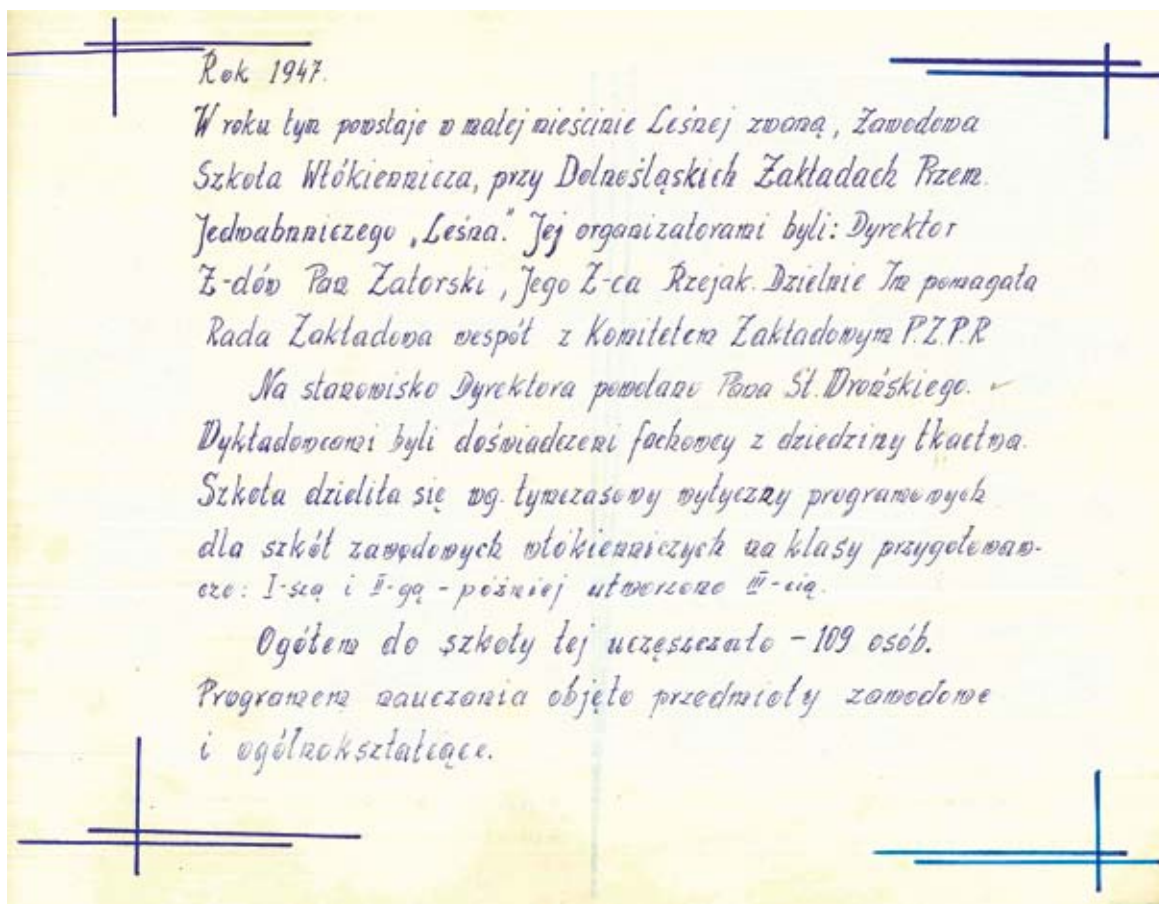 Rok 1947.
W roku tym powstaje w małej mieścinie Leśnej zwaną, Zawodowa
Szkoła Włókiennicza, przy Dolnośląskich Zakładach Przem.
Jedwabniczego „Leśna". Jej organizatorami byli: Dyrektor
Z-dów Pan Zatorski, Jego Z-ca Rzejak. Dzielnie Im pomagała
Rada Zakładowa wespół z Komitetem Zakładowym P.Z.P.R
Na stanowisko Dyrektora powołano Pana St. Wrońskiego.
Wykładowcami byli doświadczeni fachowcy z dziedziny tkactwa.
Szkoła dzieliła się wg. tymczasowy wytyczny programowych
dla szkół zawodowych włókienniczych na klasy przygotowaw-
cze: I-szą i II-gą - później utworzono III-cią.
Ogółem do szkoły tej uczęszczało - 109 osób.
Programem nauczania objęto przedmioty zawodowe
i ogólnokształcące.